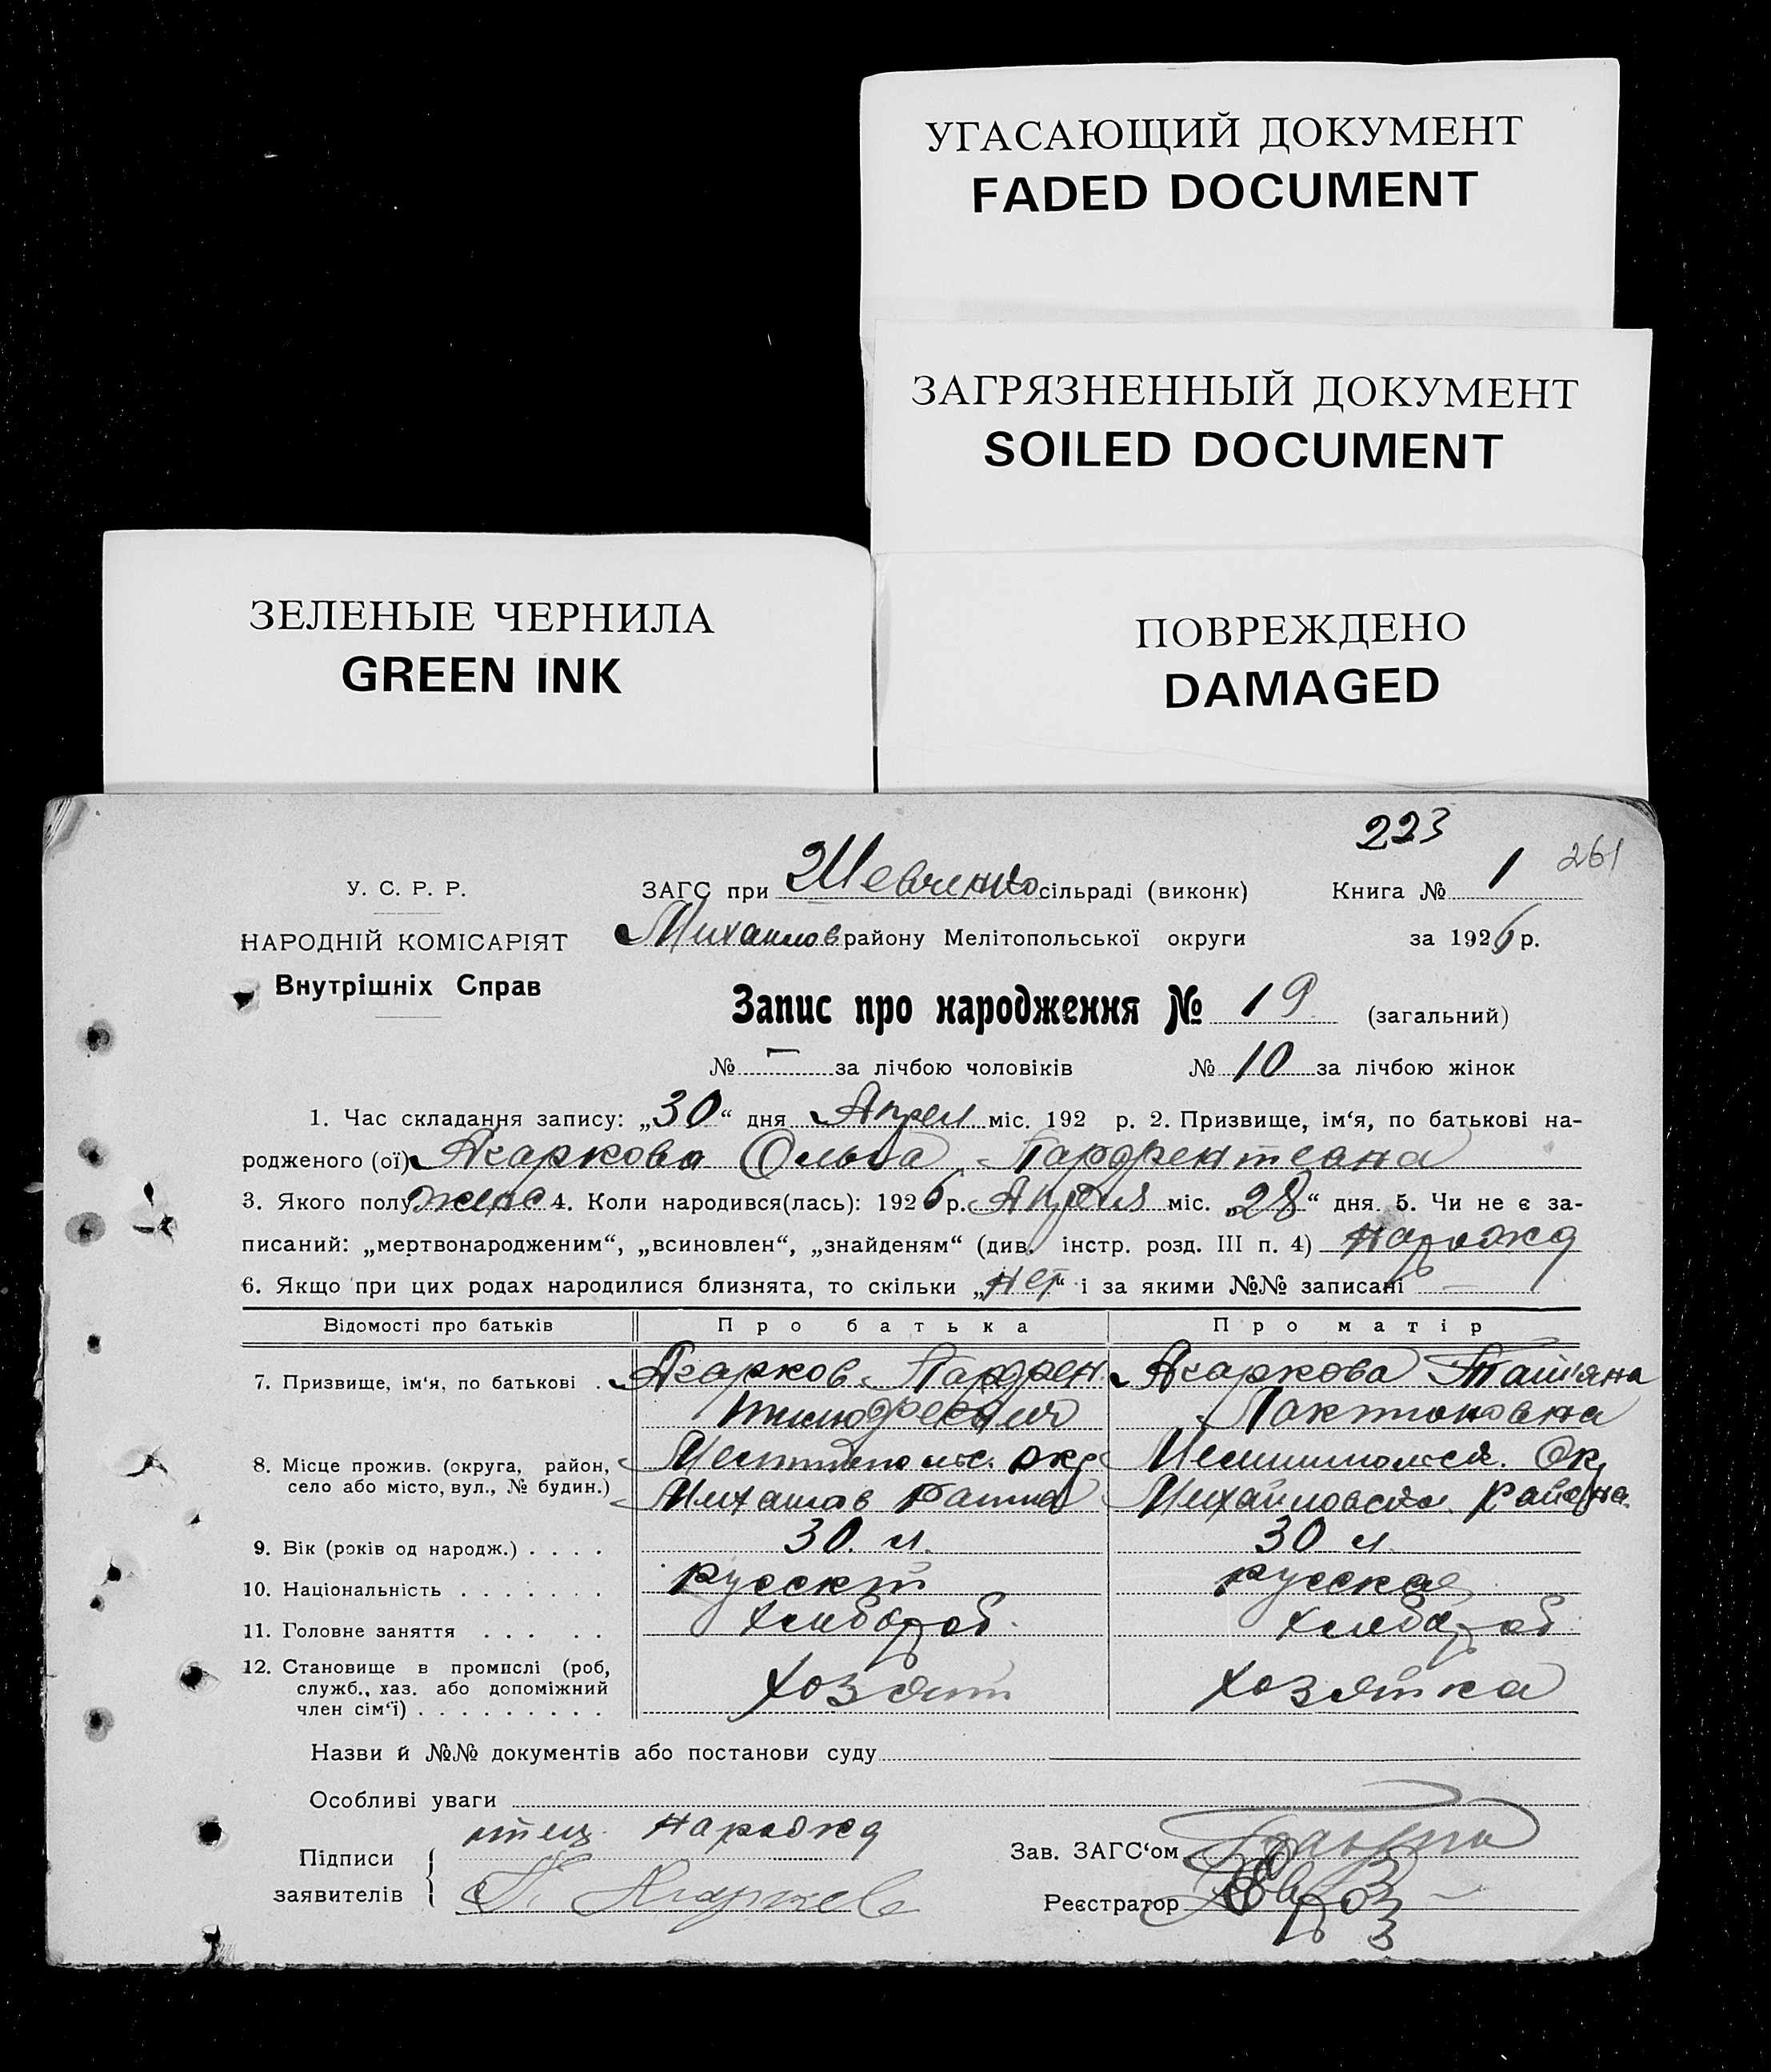 УГАСАЮЩИЙ ДОКУМЕНТ
FADED DOCUMENT
ЗАГРЯЗНЕННЫЙ ДОКУМЕНТ
SOILED DOCUMENT
ЗЕЛЕНЫЕ ЧЕРНИЛА
GREEN INK
ПОВРЕЖДЕНО
DAMAGED
223
261
У. С. Р. Р.
НАРОДНІЙ КОМІСАРІЯТ
Внутрішніх Справ
ЗАГС при Шевченко сільраді (виконк) Книга № 1
Михаилов району Мелітопольської округи за 1926 р.
Запис про народження № 19 (загальний)
№ — за лічбою чоловіків № 10 за лічбою жінок
1. Час складання запису: „30“ дня Апрел міс. 192 р. 2. Призвище, ім‘я, по батькові на-
родженого (ої) Жаркова Ольга
3. Якого полу женс 4. Коли народився(лась): 1926 р. Апреля міс. „28“ дня. 5. Чи не є за-
писаний: „мертвонародженим“, „всиновлен“, „знайденям“ (див. інстр. розд. III п. 4)
6. Якщо при цих родах народилися близнята, то скільки „нет“ і за якими №№ записані —
Відомості про батьків Про батька Про матір
7. Призвище, ім‘я, по батькові . Жарков Парфен Жаркова Татьяна
Лактионовна
8. Місце прожив. (округа, район, село або місто, вул., № будин.) Ок
Михайлов Михайловска района
9. Вік (років од народж.) . . . . 30 л. 30 л
10. Національність . . . . . . . русский русская
11. Головне заняття . . . . . хлибороб. хлибороб
12. Становище в промислі (роб, служб., хаз. або допоміжний член сім‘ї) . . . . . . . . . хозяин хозяйка
Назви й №№ документів або постанови суду
Особливі уваги
Підписи
заявителів
П. Жарков
Зав. ЗАГС‘ом
Реєстратор